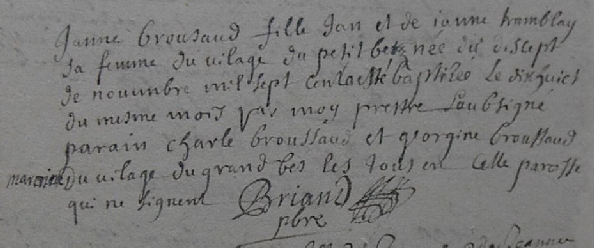 Janne broussaud fille Jan et de ianne tramblay
sa femme du vilage du petit bes née dis disept
de novembre mil sept cent a esté baptisée le dixhuict
du mesme mois par moy prestre soubsigné
parain charle broussaud et georgine broussaud
maraine du vilage du grand bes les tous en cette parosse
qui ne signent Briand
pbre